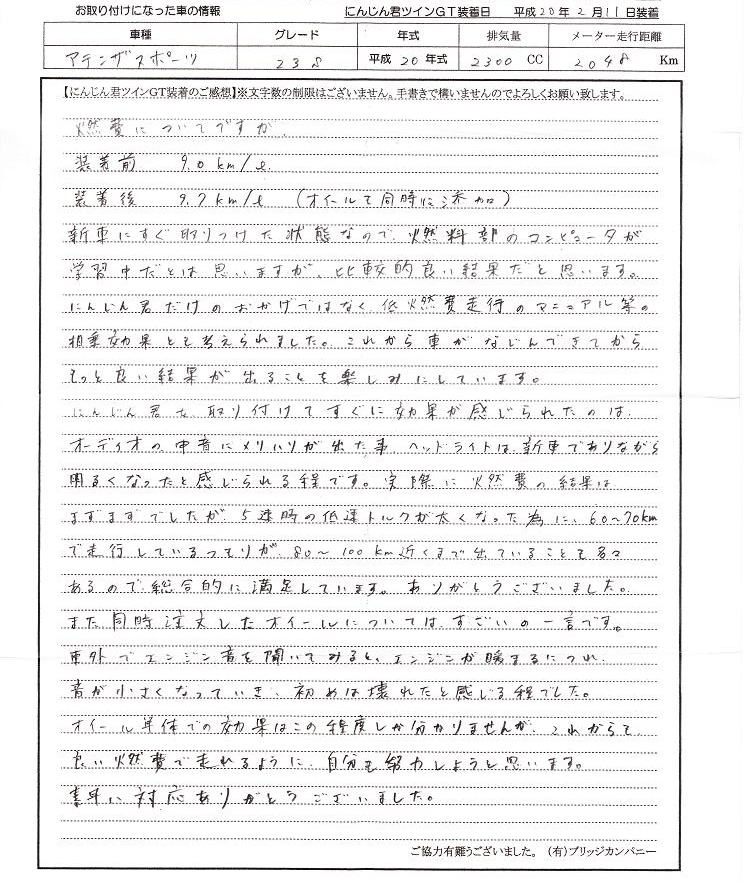 お取り付けになった車の情報 にんじん君ツインGT装着日 平成20年2月11日装着
車種 グレード 年式 排気量 メーター走行距離
アテンザスポーツ 23S 平成20年式 2300CC 2048Km
【にんじん君ツインGT装着のご感想】※文字数の制限はございません。手書きで構いませんのでよろしくお願い致します。
燃費についてですが、
装着前 9.0km/ℓ
装着後 9.7km/ℓ (オイルも同時に添加)
新車にすぐ取りつけた状態なので、燃料部のコンピュータが
学習中だとは思いますが、比較的良い結果だと思います。
にんじん君だけのおかげではなく低燃費走行のマニュアル等の
相乗効果とも考えられました。これから車がなじんできてから
もっと良い結果が出ることを楽しみにしています。
にんじん君を取り付けてすぐに効果が感じられたのは、
オーディオの中音にメリハリが出た事、ヘッドライトは、新車でありながら
明るくなったと感じられる程です。実際に燃費の結果は
まずまずでしたが5速時の低速トルクが太くなった為に、60〜70km
で走行しているつもりが、80〜100km近くまで出ていることも多々
あるので総合的に満足しています。ありがとうございました。
また同時注文したオイールについては、すごいの一言です。
車外でエンジン音を聞いてみると、エンジンが暖まるにつれ、
音が小さくなっていき、初めは壊れたと感じる程でした。
オイール単体での効果はこの程度しか分かりませんが、これからも
良い燃費で走れるように、自分も努力しようと思います。
素早い対応ありがとうございました。
ご協力有難うございました。 (有)ブリッジカンパニー